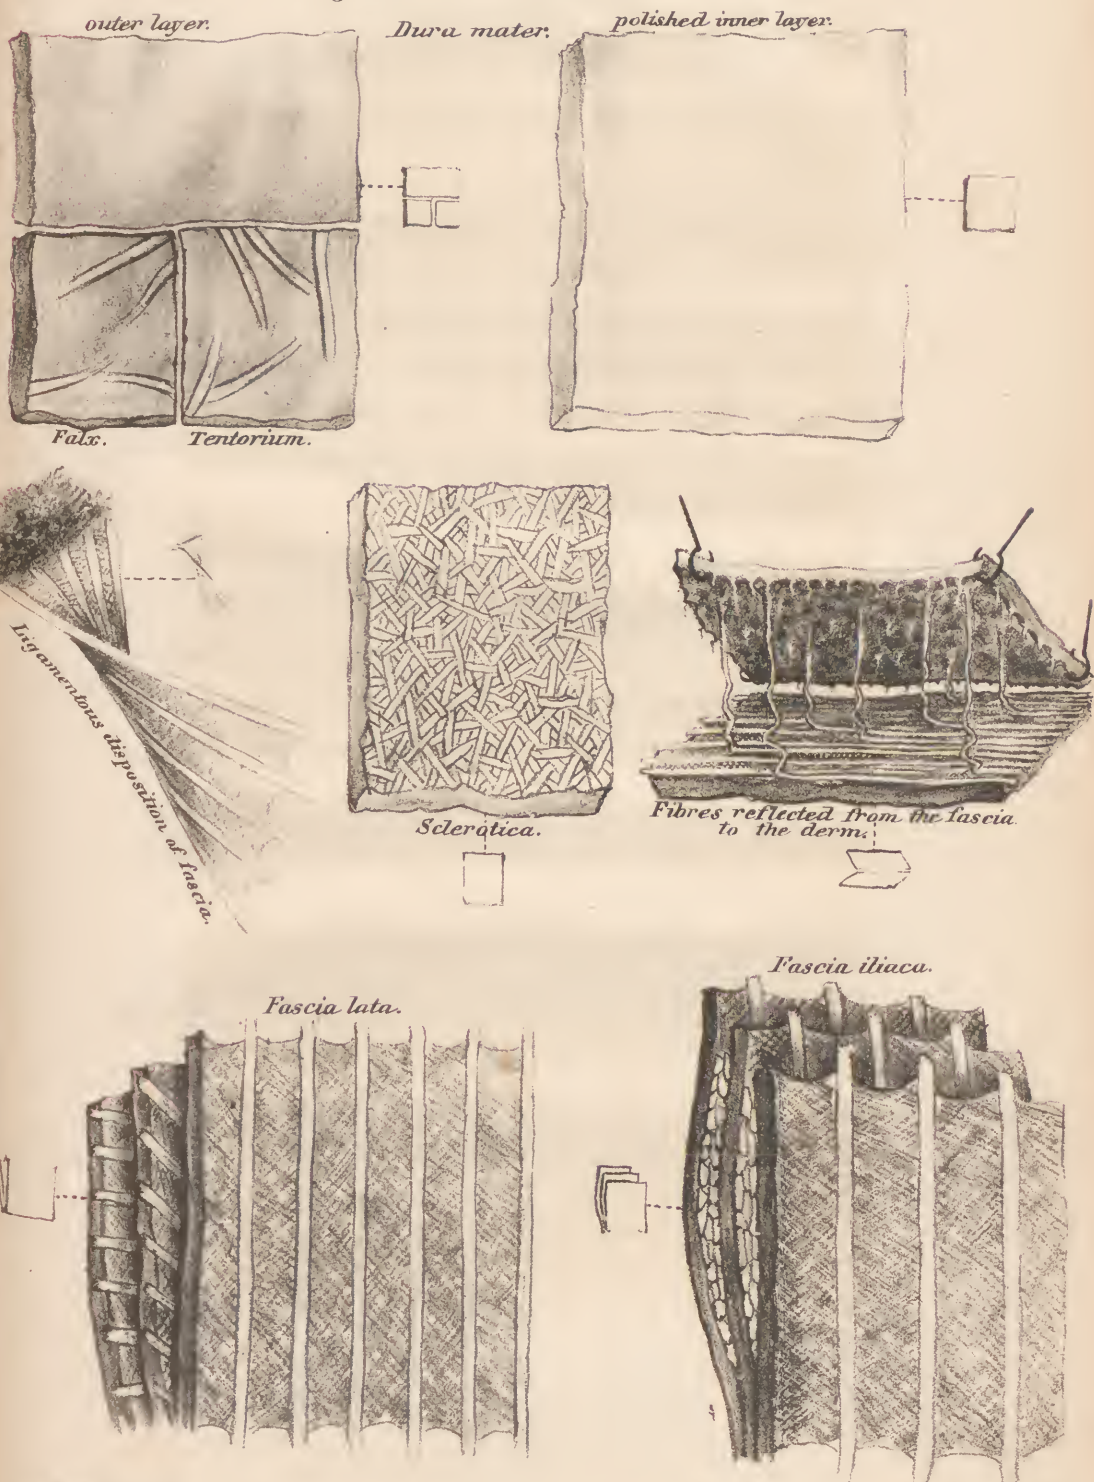 outer layer.
Dura mater.
polished inner layer.
Falx.
Tentorium.
Ligamentous disposition of fascia.
Sclerotica.
Fibres reflected from the fascia
to the derm.
Fascia lata.
Fascia iliaca.